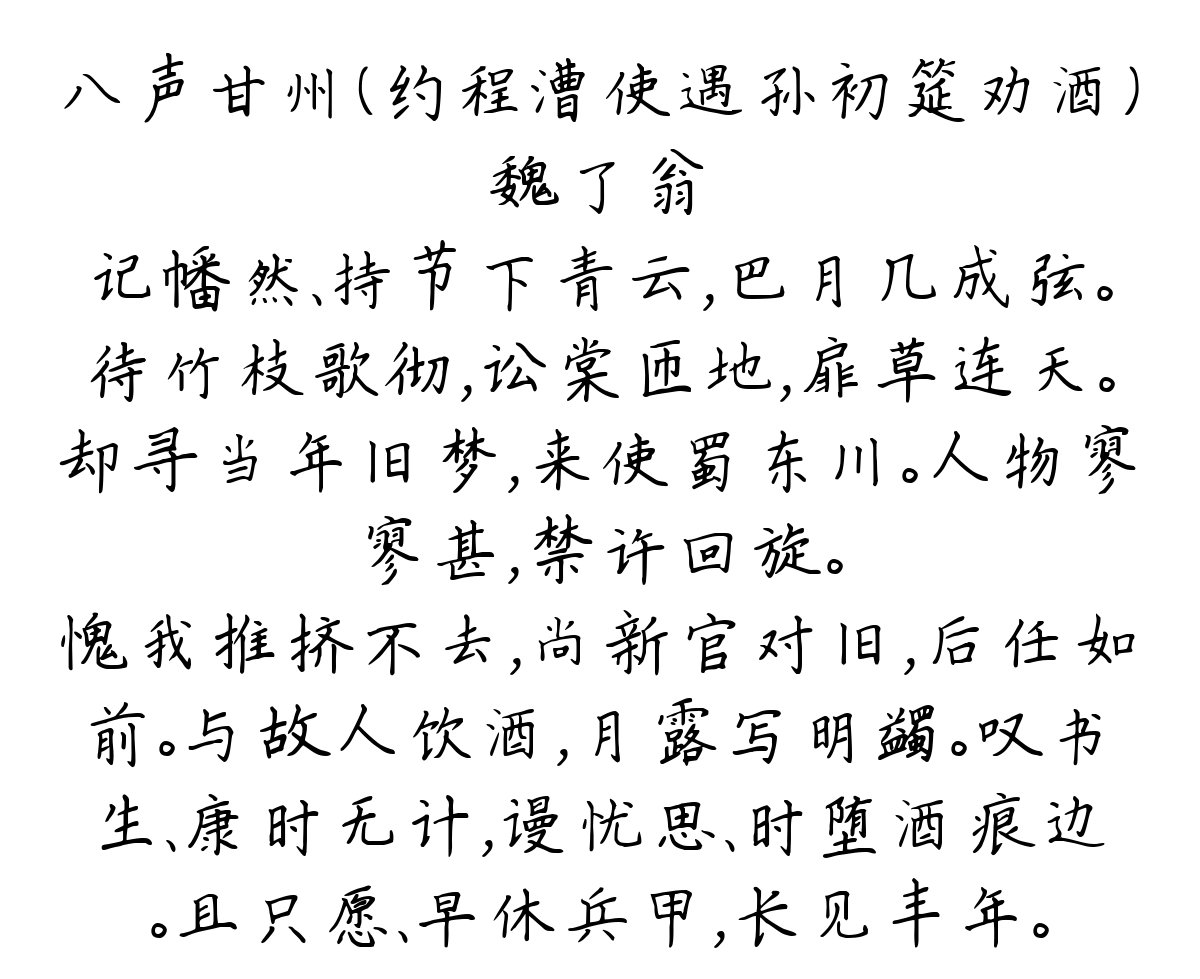 八声甘州(约程漕使遇孙初筵劝酒)
魏了翁
记幡然、持节下青云,巴月几成弦。
待竹枝歌彻,讼棠匝地,扉草连天。
却寻当年旧梦,来使蜀东川。人物寥
寥甚,禁许回旋。
愧我推挤不去,尚新官对旧,后任如
前。与故人饮酒,月露写明蠲。叹书
生、康时无计,谩忧思、时堕酒痕边
。且只愿、早休兵甲,长见丰年。